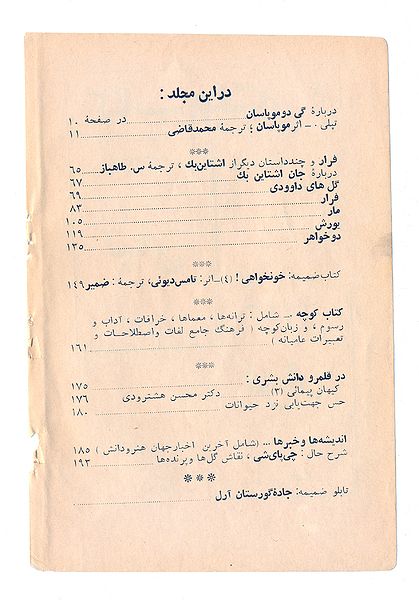 در این مجلد :
دربارهٔ گی دوموپاسان ... در صفحهٔ ۱۰
تپلی . ـ اثر موپاسان ؛ ترجمهٔ محمدقاضی ۱۱
***
فرار و چند داستان دیگر از اشتاین‌بك ، ترجمهٔ س. طاهباز ۶۵
دربارهٔ جان اشتاین بك ۶۷
گل های داوودی ۶۹
فرار ۸۳
مار ۱۰۵
یورش ۱۱۹
دوخواهر ۱۳۵
***
کتاب ضمیمه: خونخواهی ! (۴)ـ اثر: تامس‌دیوئی، ترجمهٔ : ضمیر ۱۴۹
***
کتاب کوچه ... شامل : ترانه‌ها ، معماها ، خرافات ، آداب و
رسوم ، و زبان‌کوچه ( فرهنگ جامع لغات واصطلاحات و
تعبیرات عامیانه ) ۱۶۱
***
در قلمرو دانش بشری : ۱۷۵
کیهان پیمائی (۳) ... دکتر محسن هشترودی ۱۷۶
حس جهت‌یابی نزد حیوانات ۱۸۰
اندیشه‌ها وخبرها ... (شامل آخرین اخبارجهان هنرودانش ) ۱۸۵
شرح حال : چی‌بای‌شی ، نقاش گل‌ها وپرنده‌ها ۱۹۳
***
تابلو ضمیمه: جادهٔ گورستان آرل